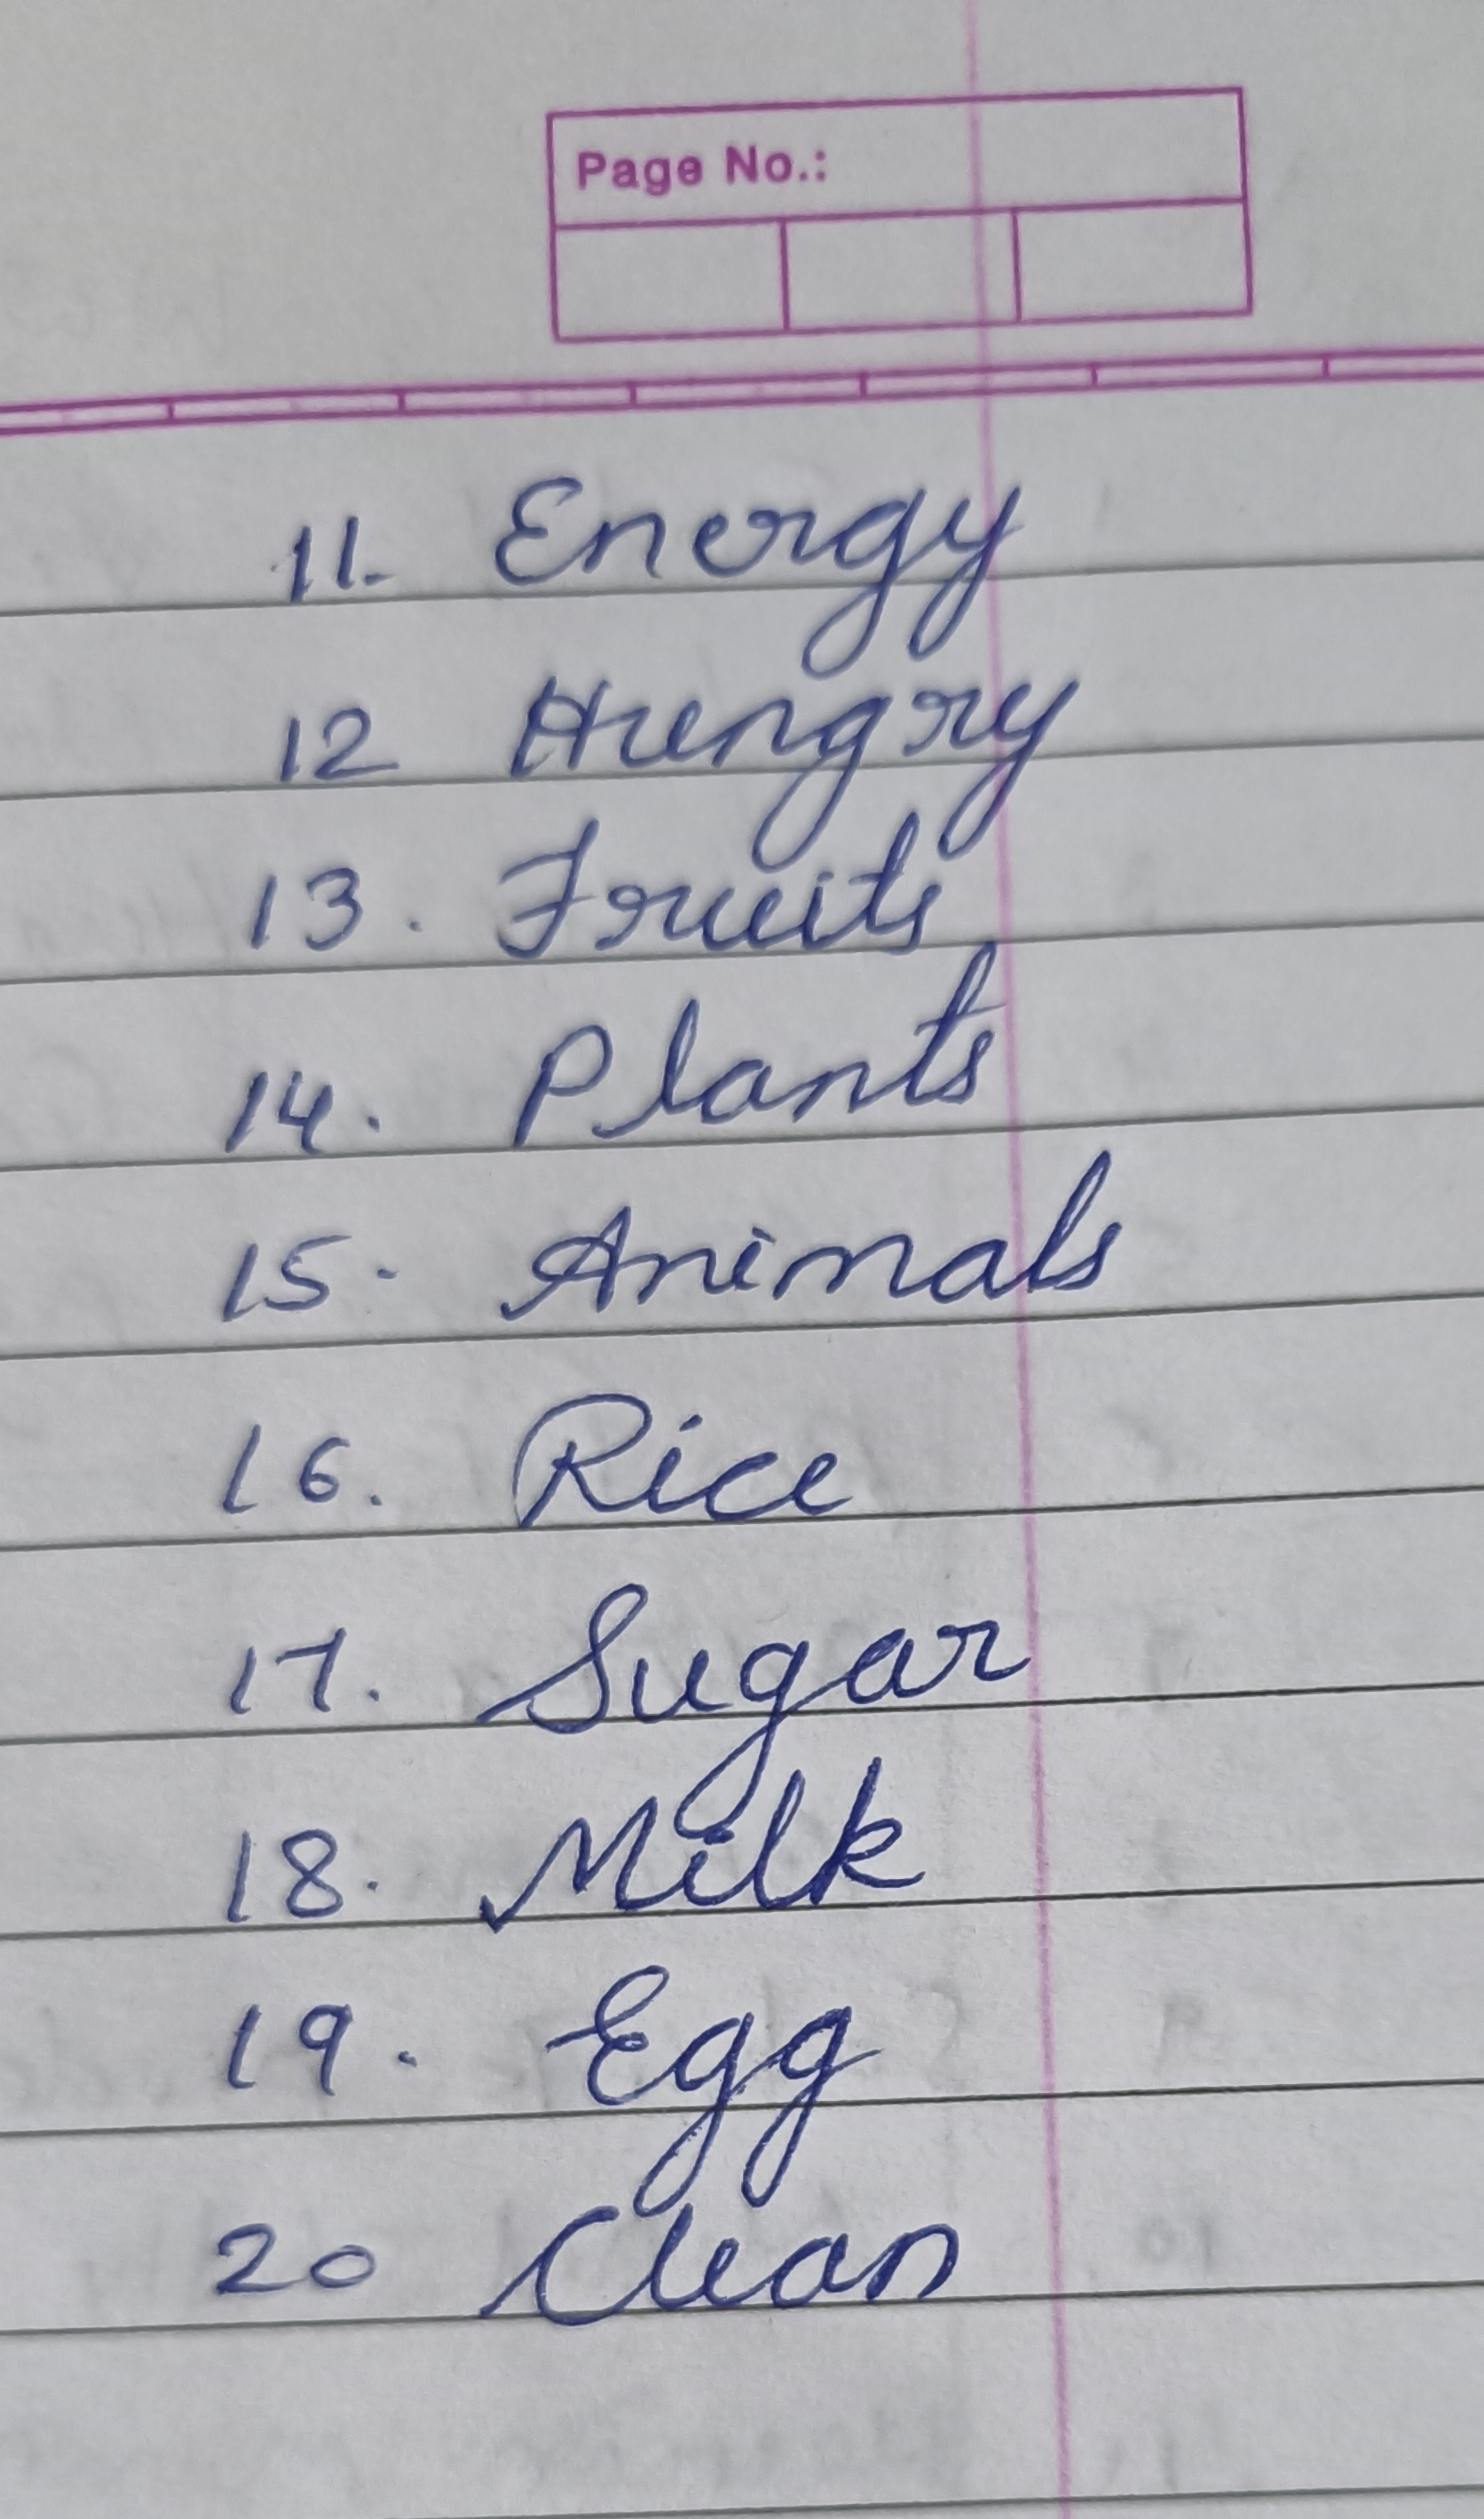 Page No.:
11. Energy
12 Hungry
13. Fruits
14. Plants
15. Animals
16. Rice
17. Sugar
18. Milk
19. Egg
20 Clean